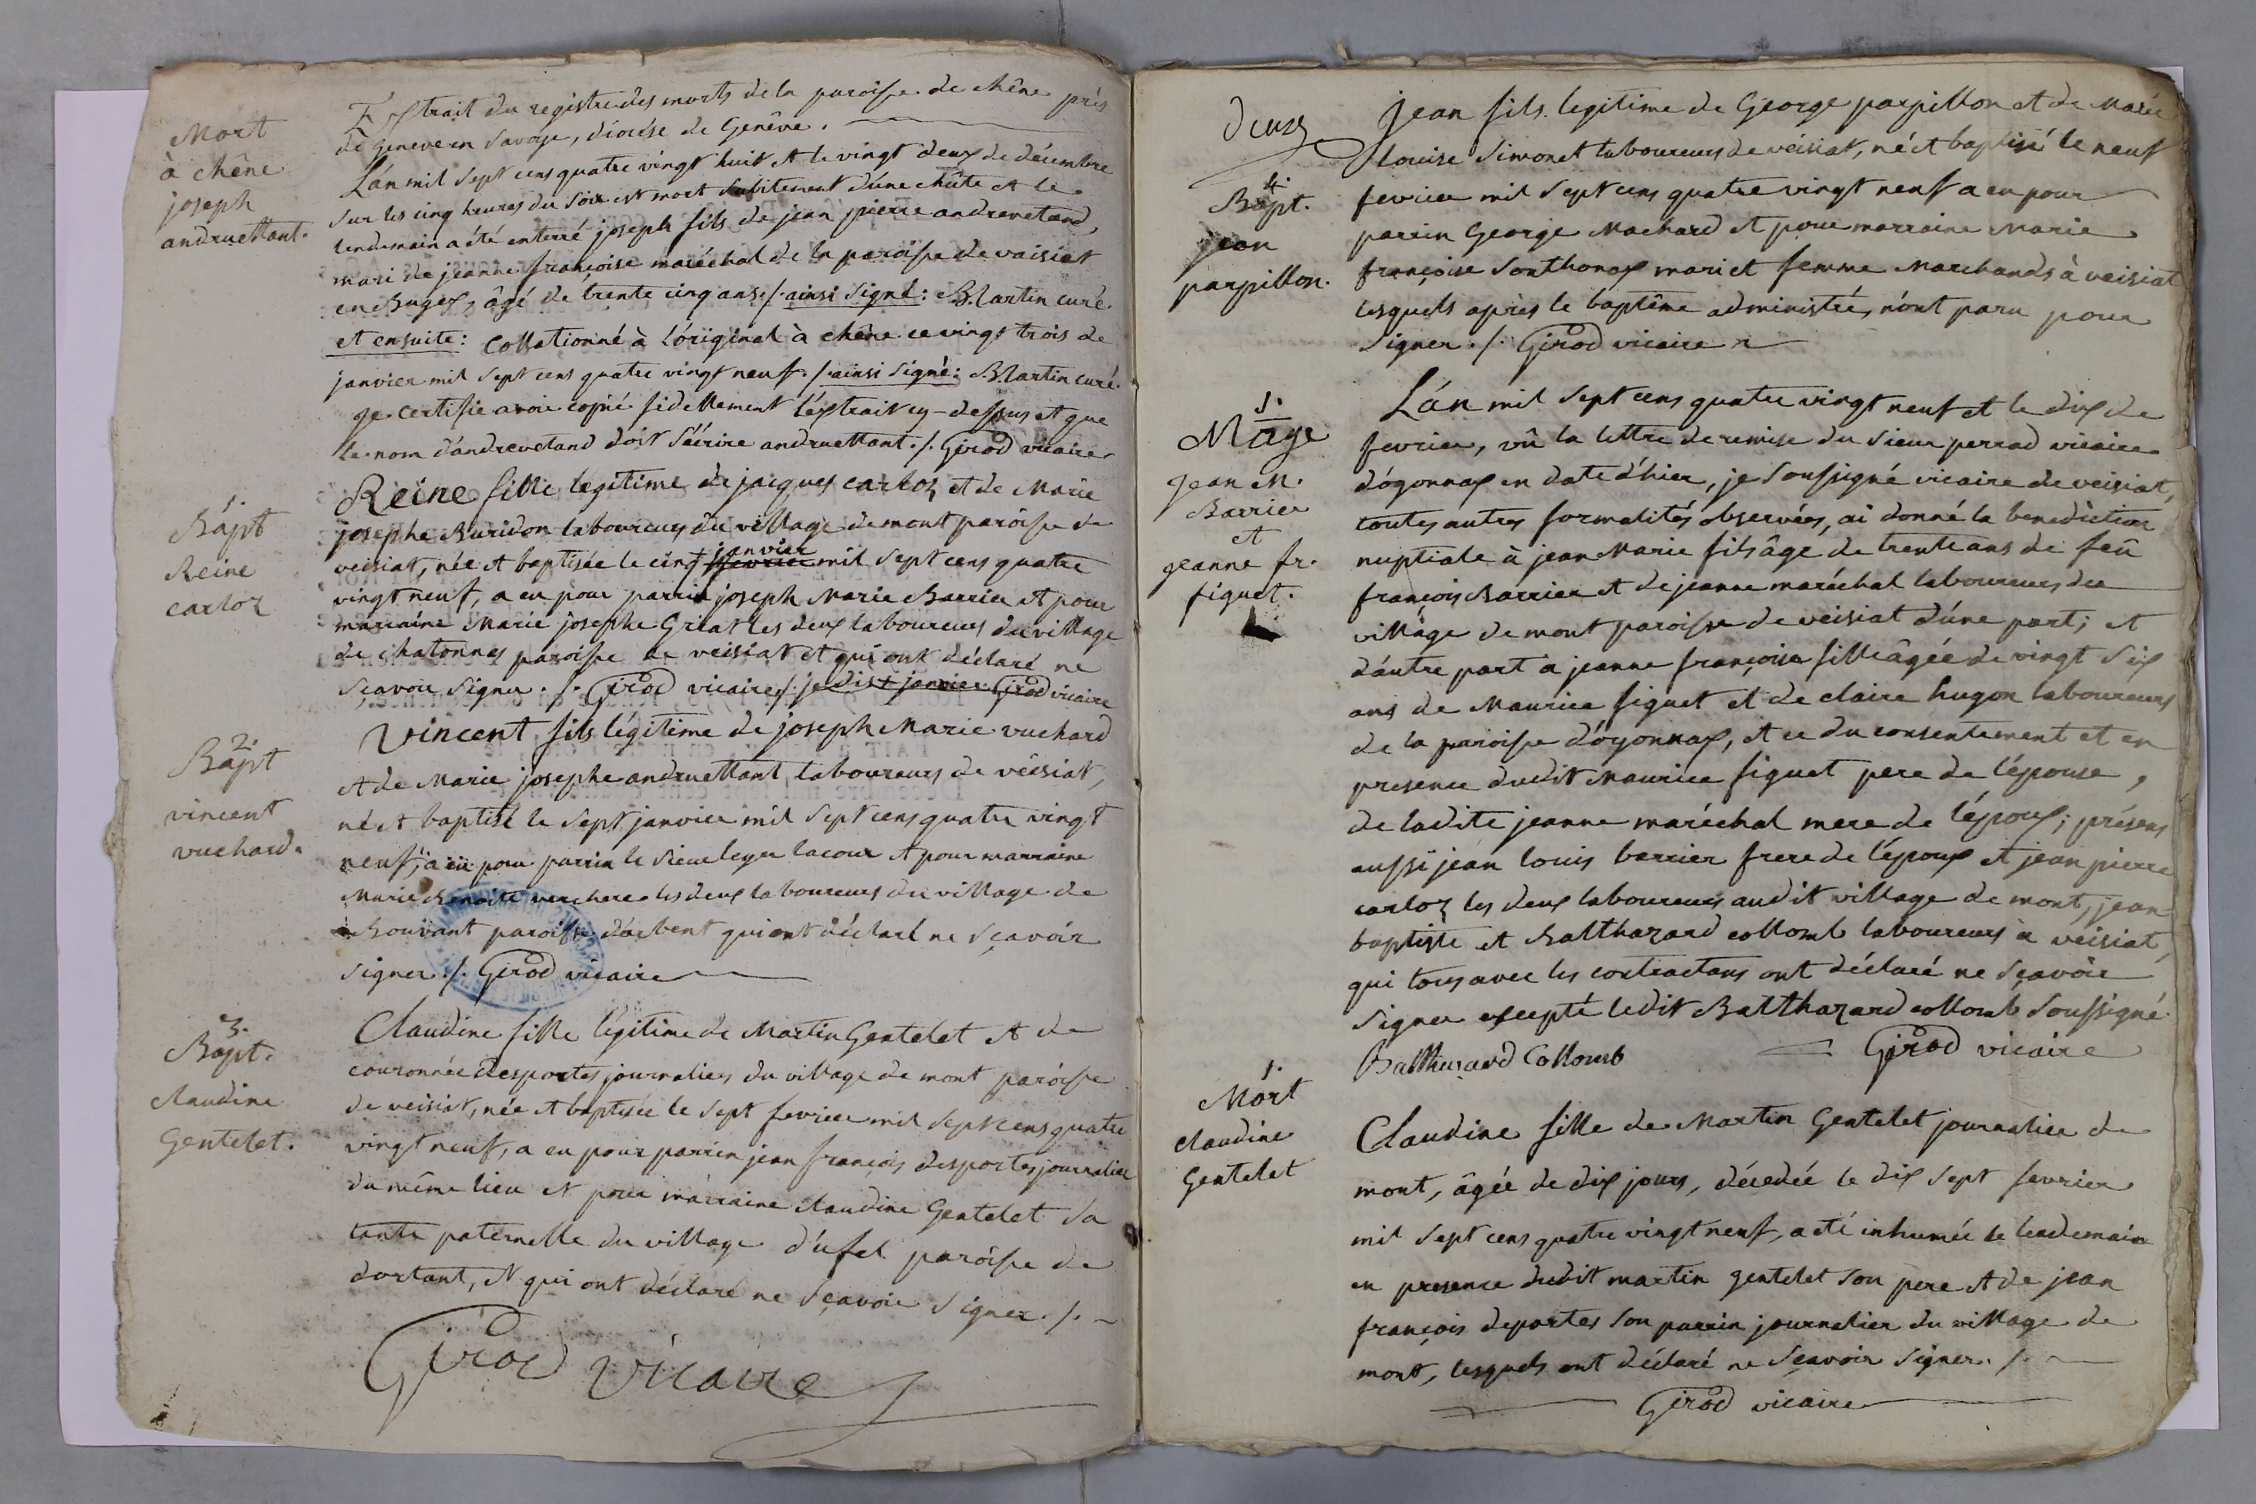 Mort
à chêne
joseph
andruettant.
Extrait du registre des morts de la paroisse de chêne près
de geneve en Savoye, diocése de Genêve.
L'an mil sept cens quatre vingt huit et le vingt deux de décembre
sur les cinq heures du soir est mort subitement d'une chûte et le
lendemain a été enterré joseph fils de jean pierre andrevetand,
mari de jeanne françoise maréchal de la paroisse de vaisiat
en Bugex, âgé de trente cinq ans ./. ainsi signé: Martin curé.
et ensuite: Collationné à l'original à chêne ce vingt trois de
janvier mil sept cens quatre vingt neuf. /. ainsi signé: Martin curé.
je certifie avoir copié fidellement l'extrait cy-dessus et que
le nom d'andrevetand doit s'écrire andruettant ./. Girod vicaire
1.
Bapt
Reine
carloz
Reine fille légitime de jacques carloz et de Marie
josephe Buridon laboureurs du village de mont paroisse de
veisiat, née et baptisée le cinq janvier fevrier mil sept cens quatre
vingt neuf, a eu pour parrin joseph Marie Barrier et pour
marraine Marie josephe Gréat les deux laboureurs du village
de chatonnes paroisse de veisiat et qui ont déclaré ne
sçavoir signer ./. Girod vicaire /. je dis + janvier Girod vicaire
2.
Bapt
vincent
vuchard.
Vincent fils légitime de joseph Marie vuchard
et de Marie josephe andruettant laboureurs de veisiat,
né et baptisé le sept janvier mil sept cens quatre vingt
neuf, a eu pour parrin le sieur leger lacour et pour marraine
Marie Benoite verchere les deux laboureurs du village de
Bouvant paroisse d'arbent qui ont déclaré ne sçavoir
signer ./. Girod vicaire
3.
Bapt.
claudine
Gentelet.
Claudine fille légitime de Martin Gentelet et de
couronnée Desportes journaliers du village de mont paroisse
de veisiat, née et baptisée le sept fevrier mil sept cens quatre
vingt neuf, a eu pour parrin jean françois desportes journalier
du même lieu et pour marraine claudine Gentelet sa
tante paternelle du village d'ufel paroisse de
dortant, et qui ont déclaré ne sçavoir signer ./.
Girod vicaire
deux
4.
Bapt.
jean
parpillon.
Jean fils légitime de George parpillon et de Marie
Louise Simonet laboureurs de veisiat, né et baptisé le neuf
fevrier mil sept cens quatre vingt neuf a eu pour
parrin George Machard et pour marraine Marie
françoise Sonthonax mari et femme marchands à veisiat
lesquels après le baptême administré, n'ont paru pour
signer ./. Girod vicaire
1.
Mage
jean M.
Barrier
et
jeanne fr.
figuet.
L'an mil sept cens quatre vingt neuf et le dix de
fevrier, vû la lettre de remise du sieur perrad vicaire
d'oyonnax en date d'hier, je soussigné vicaire de veisiat,
toutes autres formalités observées, ai donné la benediction
nuptiale à jean Marie fils âgé de trente ans de feû
françois Barrier et de jeanne maréchal laboureurs du
village de mont paroisse de veisiat d'une part; et
d'autre part à jeanne françoise fille âgée de vingt six
ans de Maurice figuet et de claire hugon laboureurs
de la paroisse d'oyonnax, et ce du consentement et en
presence dudit Maurice figuet pere de l'épouse,
de ladite jeanne maréchal mere de l'époux; présens
aussi jean louis barrier frere de l'époux et jean pierre
carloz les deux laboureurs audit village de mont, jean
baptiste et Balthazard collomb laboureurs à veisiat,
qui tous avec les contractans ont déclaré ne sçavoir
signer excepté ledit Balthazard collomb soussigné.
Balthazard Collomb Girod vicaire
1.
Mort
claudine
Gentelet
Claudine fille de Martin Gentelet journalier de
mont, âgée de dix jours, décedée le dix sept fevrier
mil sept cens quatre vingt neuf, a été inhumée le lendemain
en presence dudit martin gentelet son pere et de jean
françois deportes son parrin journalier du village de
mont, lesquels ont déclaré ne sçavoir signer ./.
Girod vicaire